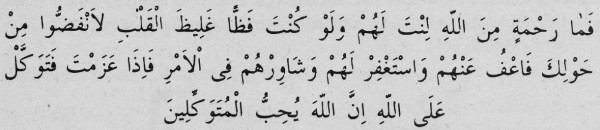 فَمٰا رَحْمَةٍ مِنَ اللّٰهِ لِنْتَ لَهُمْ وَلَوْ كُنْتَ فَظًّا غَلِيظَ الْقَلْبِ لاَنْفَضُّوا مِنْ
حَوْلِكَ فَاعْفُ عَنْهُمْ وَاسْتَغْفِرْ لَهُمْ وَشَاوِرْهُمْ فِى الْاَمْرِ فَاِذَا عَزَمْتَ فَتَوَكَّلْ
عَلَى اللّٰهِ اِنَّ اللّٰهَ يُحِبُّ الْمُتَوَكِّلِينَ